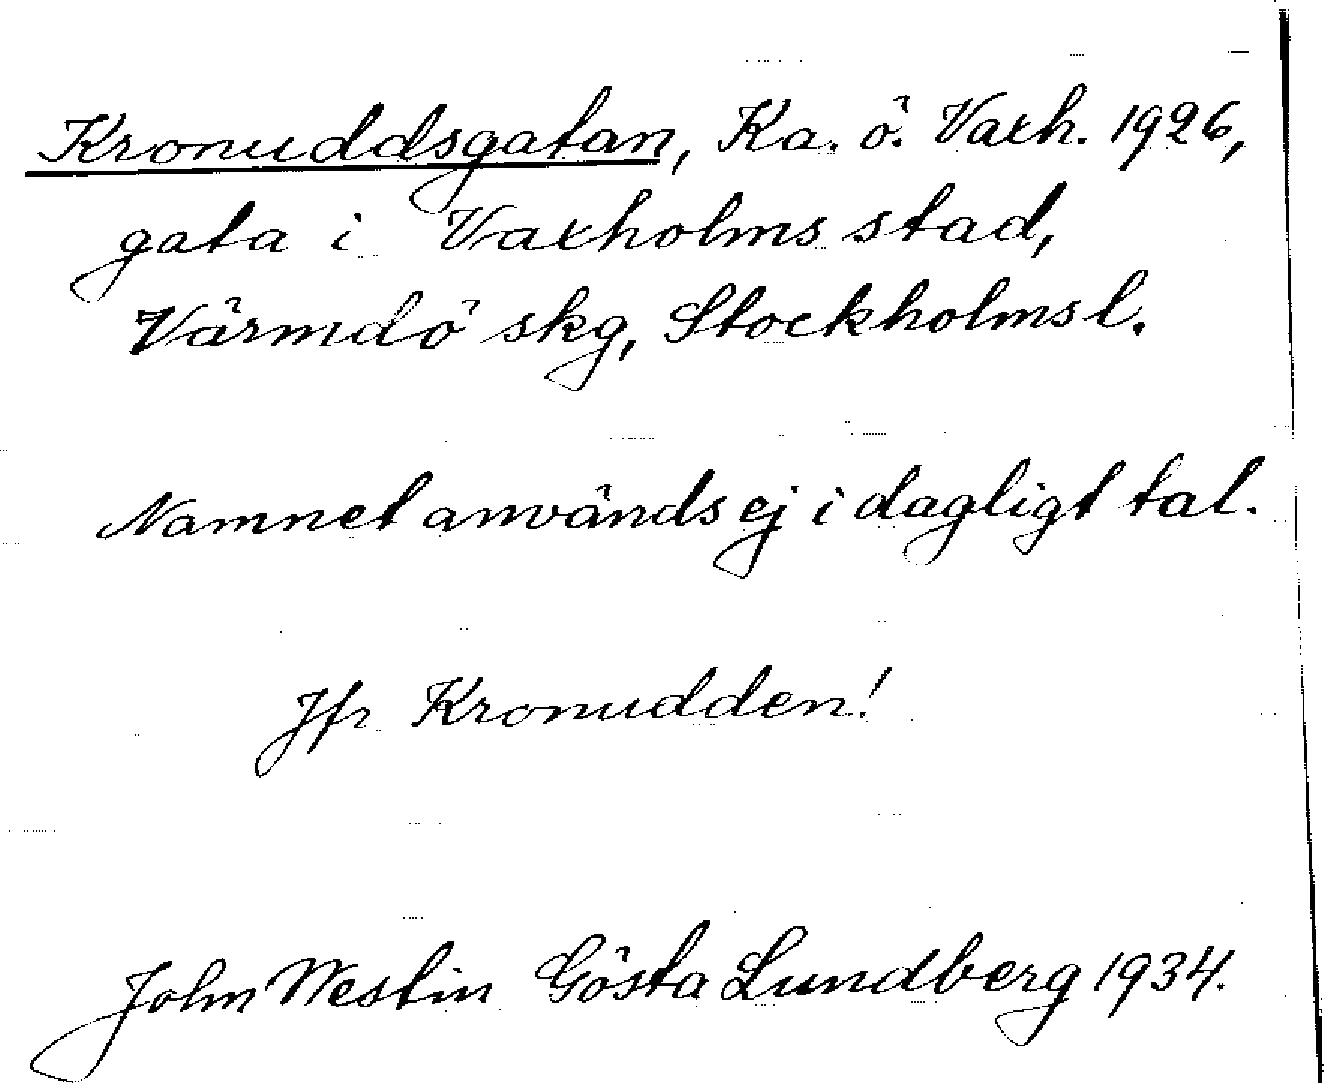 Kronuddsgatan, Ka. ö. Vaxh. 1926,
gata i Vaxholms stad,
Värmdö skg, Stockholms l.
Namnet används ej i dagligt tal.
Jfr Kronudden!
John Westin Gösta Lundberg 1934.